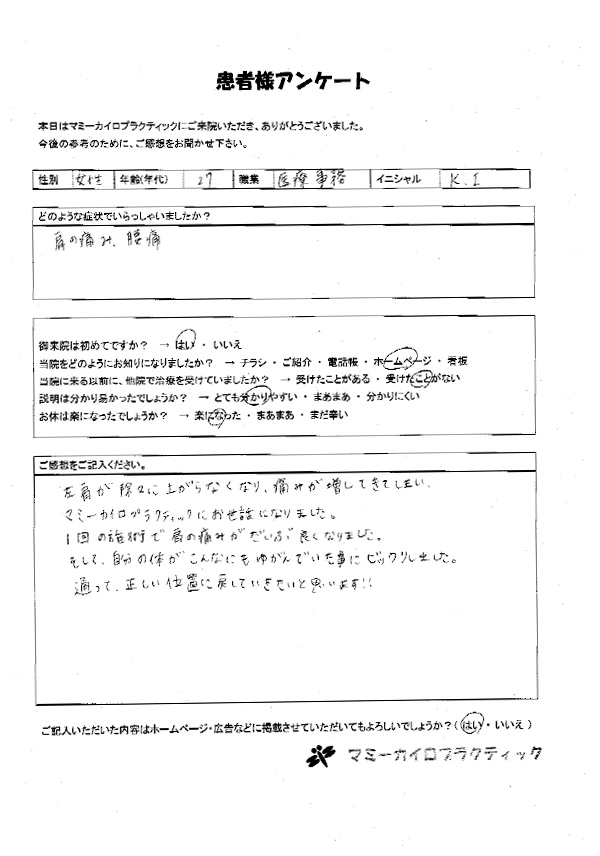 患者様アンケート
本日はマミーカイロプラクティックにご来院いただき、ありがとうございました。
今後の参考のために、ご感想をお聞かせ下さい。
性別 女性 年齢(年代) 27 職業 医療事務 イニシャル K.I
どのような症状でいらっしゃいましたか？
肩の痛み、腰痛
御来院は初めてですか？ → はい ・ いいえ
当院をどのようにお知りになりましたか？ → チラシ ・ ご紹介 ・ 電話帳 ・ ホームページ ・ 看板
当院に来る以前に、他院で治療を受けていましたか？ → 受けたことがある ・ 受けたことがない
説明は分かり易かったでしょうか？ → とても分かりやすい ・ まあまあ ・ 分かりにくい
お体は楽になったでしょうか？ → 楽になった ・ まあまあ ・ まだ辛い
ご感想をご記入ください。
左肩が除々に上がらなくなり、痛みが増してきてしまい、
マミーカイロプラクティックにお世話になりました。
1回の施術で肩の痛みがだいぶ良くなりました。
そして、自分の体がこんなにもゆがんでいた事にビックリしました。
通って、正しい位置に戻していきたいと思います!!
ご記入いただいた内容はホームページ・広告などに掲載させていただいてもよろしいでしょうか？（ はい ・ いいえ ）
マミーカイロプラクティック